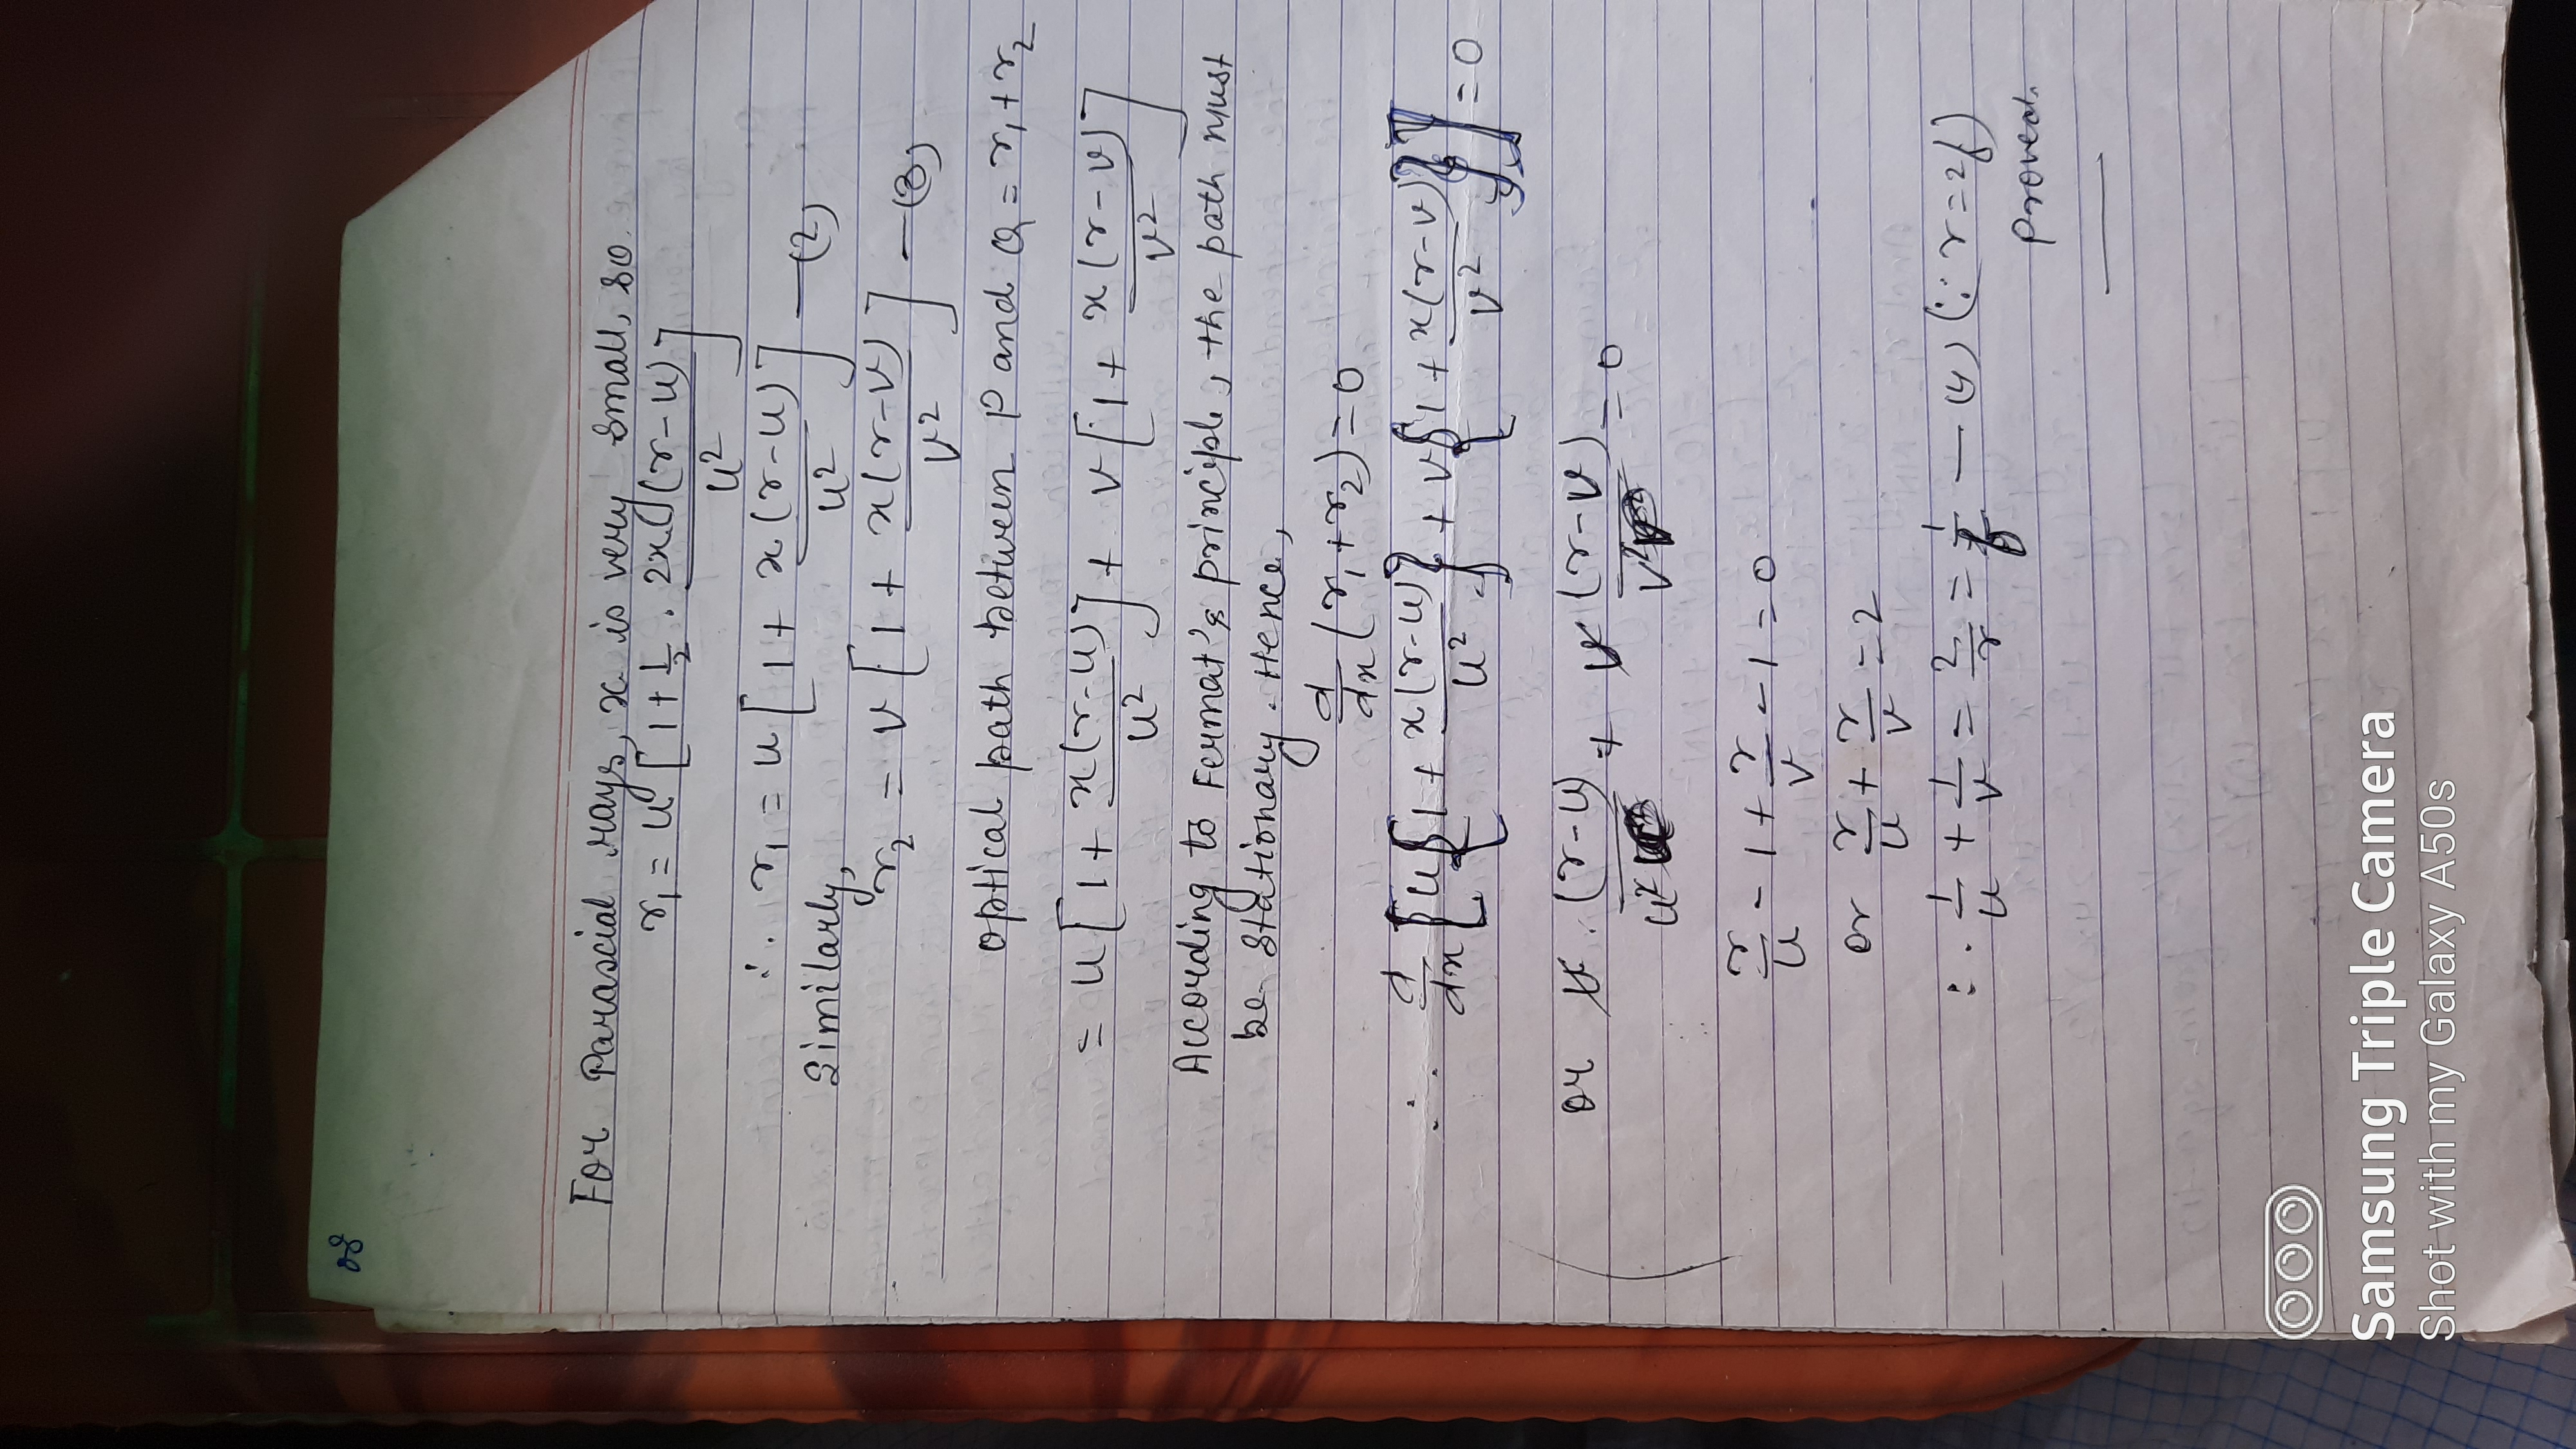 28
For Paraxial rays, x is very small, so
r₁ = u [1 + 1/2 . 2x(r-u)/u²]
∴ r₁ = u [1 + x(r-u)/u²] —(2)
Similarly,
r₂ = v [1 + x(r-v)/v²] —(3)
optical path between P and Q = r₁ + r₂
= u [1 + x(r-u)/u²] + v [1 + x(r-v)/v²]
According to Fermat's principle, the path must
be stationary. Hence,
d/dx (r₁ + r₂) = 0
∴ d/dx [u{1 + x(r-u)/u²} + v{1 + x(r-v)/v²}] = 0
or u . (r-u)/u² + v (r-v)/v² = 0
r/u - 1 + r/v - 1 = 0
or r/u + r/v = 2
∴ 1/u + 1/v = 2/r = 1/f — (4) (∵ r = 2f)
Proved.
Samsung Triple Camera
Shot with my Galaxy A50s